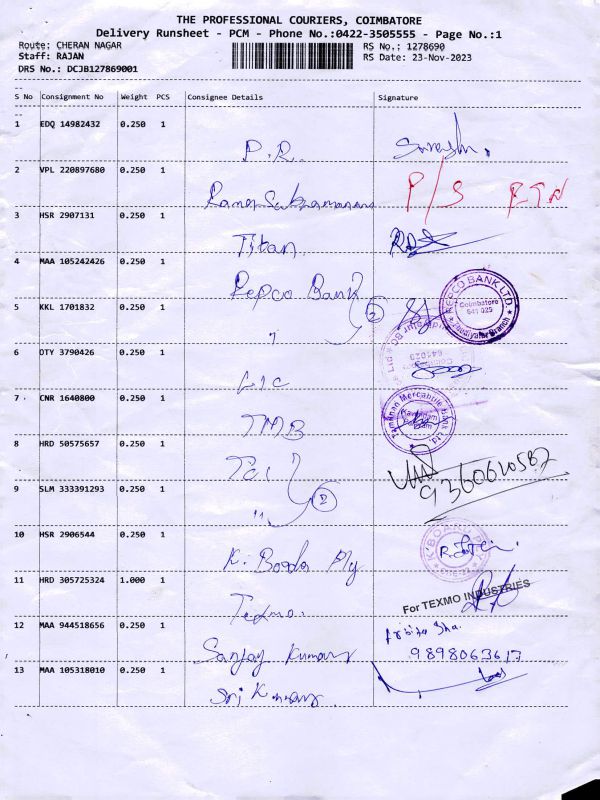 THE PROFESSIONAL COURIERS, COIMBATORE
Delivery Runsheet - PCM - Phone No.:0422-3505555 - Page No.:1
Route: CHERAN NAGAR RS No.: 1278690
Staff: RAJAN RS Date: 23-Nov-2023
DRS No.: DCJB127869001
S No Consignment No Weight PCS Consignee Details Signature
1 EDQ 14982432 0.250 1
P.R. Suresh.
2 VPL 220897680 0.250 1
P/S RTN
3 HSR 2907131 0.250 1
Titan
4 MAA 105242426 0.250 1
Repco Bank
REPCO BANK LTD.
Coimbatore
641 029
5 KKL 1701832 0.250 1
" 2
641029
6 DTY 3790426 0.250 1
LIC
7 CNR 1640800 0.250 1
TMB
Tamilnad Mercantile Bank Ltd.
8 HRD 50575657 0.250 1
9360610587
9 SLM 333391293 0.250 1
" 2
10 HSR 2906544 0.250 1
K. Board Ply
K BOARD PLY
11 HRD 305725324 1.000 1
Texmo.
For TEXMO INDUSTRIES
12 MAA 944518656 0.250 1
Sanjay Kumar
9898063617
13 MAA 105318010 0.250 1
Sri Kumar